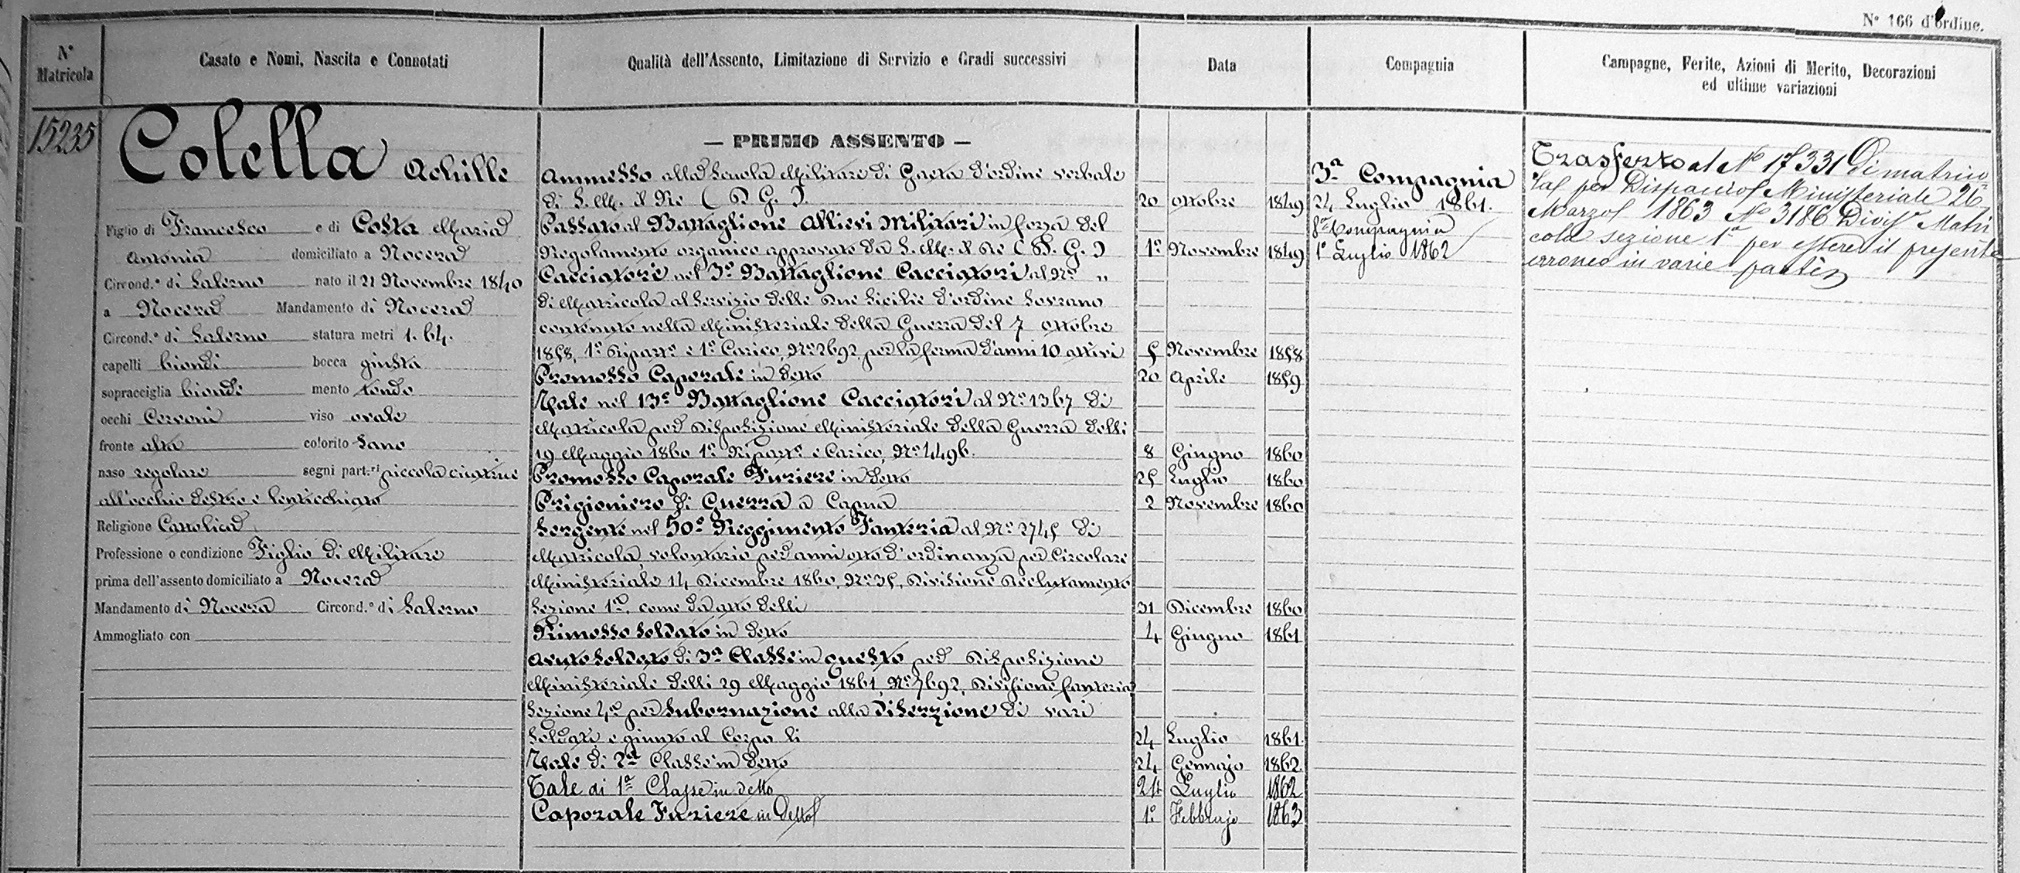 N° 166 d'ordine.
N° Matricola
Casato e Nomi, Nascita e Connotati
Qualità dell'Assento, Limitazione di Servizio e Gradi successivi
Data
Compagnia
Campagne, Ferite, Azioni di Merito, Decorazioni
ed ultime variazioni
15235
Colella Achille
Figlio di Francesco e di Costa Maria
Antonia domiciliato a Nocera
Circond.° di Salerno nato il 21 Novembre 1840
a Nocera Mandamento di Nocera
Circond.° di Salerno statura metri 1.64.
capelli biondi bocca giusta
sopracciglia bionde mento tondo
occhi Cervoni viso ovale
fronte alta colorito Sano
naso regolare segni part.ri piccola cicatrice
all'occhio destro e lenticchiato
Religione Cattolica
Professione o condizione Figlio di Militare
prima dell'assento domiciliato a Nocera
Mandamento di Nocera Circond.° di Salerno
Ammogliato con
— PRIMO ASSENTO —
Ammesso alla Scuola Militare di Gaeta d'ordine verbale
di S. M. il Re (D. G.) 20 Ottobre 1849
Passato al Battaglione Allievi Militari in forza del
Regolamento organico approvato da S. M. il Re (D. G.) 1° Novembre 1849
Cacciatore nel 3° Battaglione Cacciatori al N° "
di Matricola al Servizio delle Due Sicilie d'ordine Sovrano
contenuto nella Ministeriale della Guerra del 7 Ottobre
1858, 1° Ripart° e 1° Carico, N° 2692, per la ferma d'anni 10 attivi 5 Novembre 1858
Promosso Caporale in detto 20 Aprile 1859
Tale nel 13° Battaglione Cacciatori al N° 1367 di
Matricola per Disposizione Ministeriale della Guerra delli
19 Maggio 1860 1° Ripart° e Carico, N° 4496. 8 Giugno 1860
Promosso Caporale Furiere in detto 25 Luglio 1860
Prigioniero di Guerra a Capua 2 Novembre 1860
Sergente nel 50° Reggimento Fanteria al N° 2745 di
Matricola, volontario per anni otto d'ordinanza per Circolare
Ministeriale 14 Dicembre 1860, N° 35, Divisione Reclutamento
Sezione 1ª, come da atto delli 31 Dicembre 1860
Rimosso Soldato in detto 4 Giugno 1861
Avuto Soldato di 3ª Classe in questo per Disposizione
Ministeriale delli 29 Maggio 1861, N° 7692, Divisione fanteria
Sezione 4ª per Subornazione alla Diserzione di vari
Soldati, e giunto al Corpo li 24 Luglio 1861
Tale di 2ª Classe in detto 24 Gennajo 1862
Tale di 1ª Classe in detto 24 Luglio 1862
Caporale Furiere in detto 1° Febbrajo 1863
3ª Compagnia
24 Luglio 1861.
8ª Compagnia
1° Luglio 1862
Trasferto al N° 17331 Di matrico
la per Dispaccio Ministeriale 26
Marzo 1863 N° 3186 Divis.e Matri
cola sezione 1ª per essere il presente
erroneo in varie parti